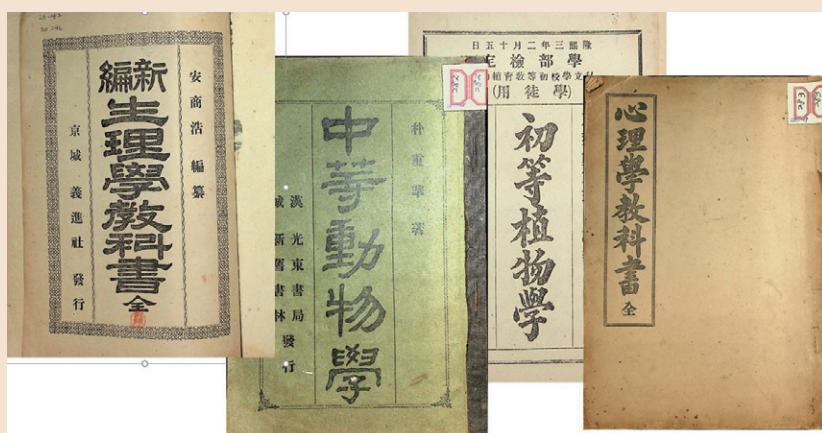 安商浩 編纂
新編
生理學教科書 全
京城 義進社 發行
朴重華著
中等動物學
漢城
光東書局
新舊書林
發行
隆熙三年二月十五日
學部檢定
(學徒用)
初等植物學
心理學教科書 全